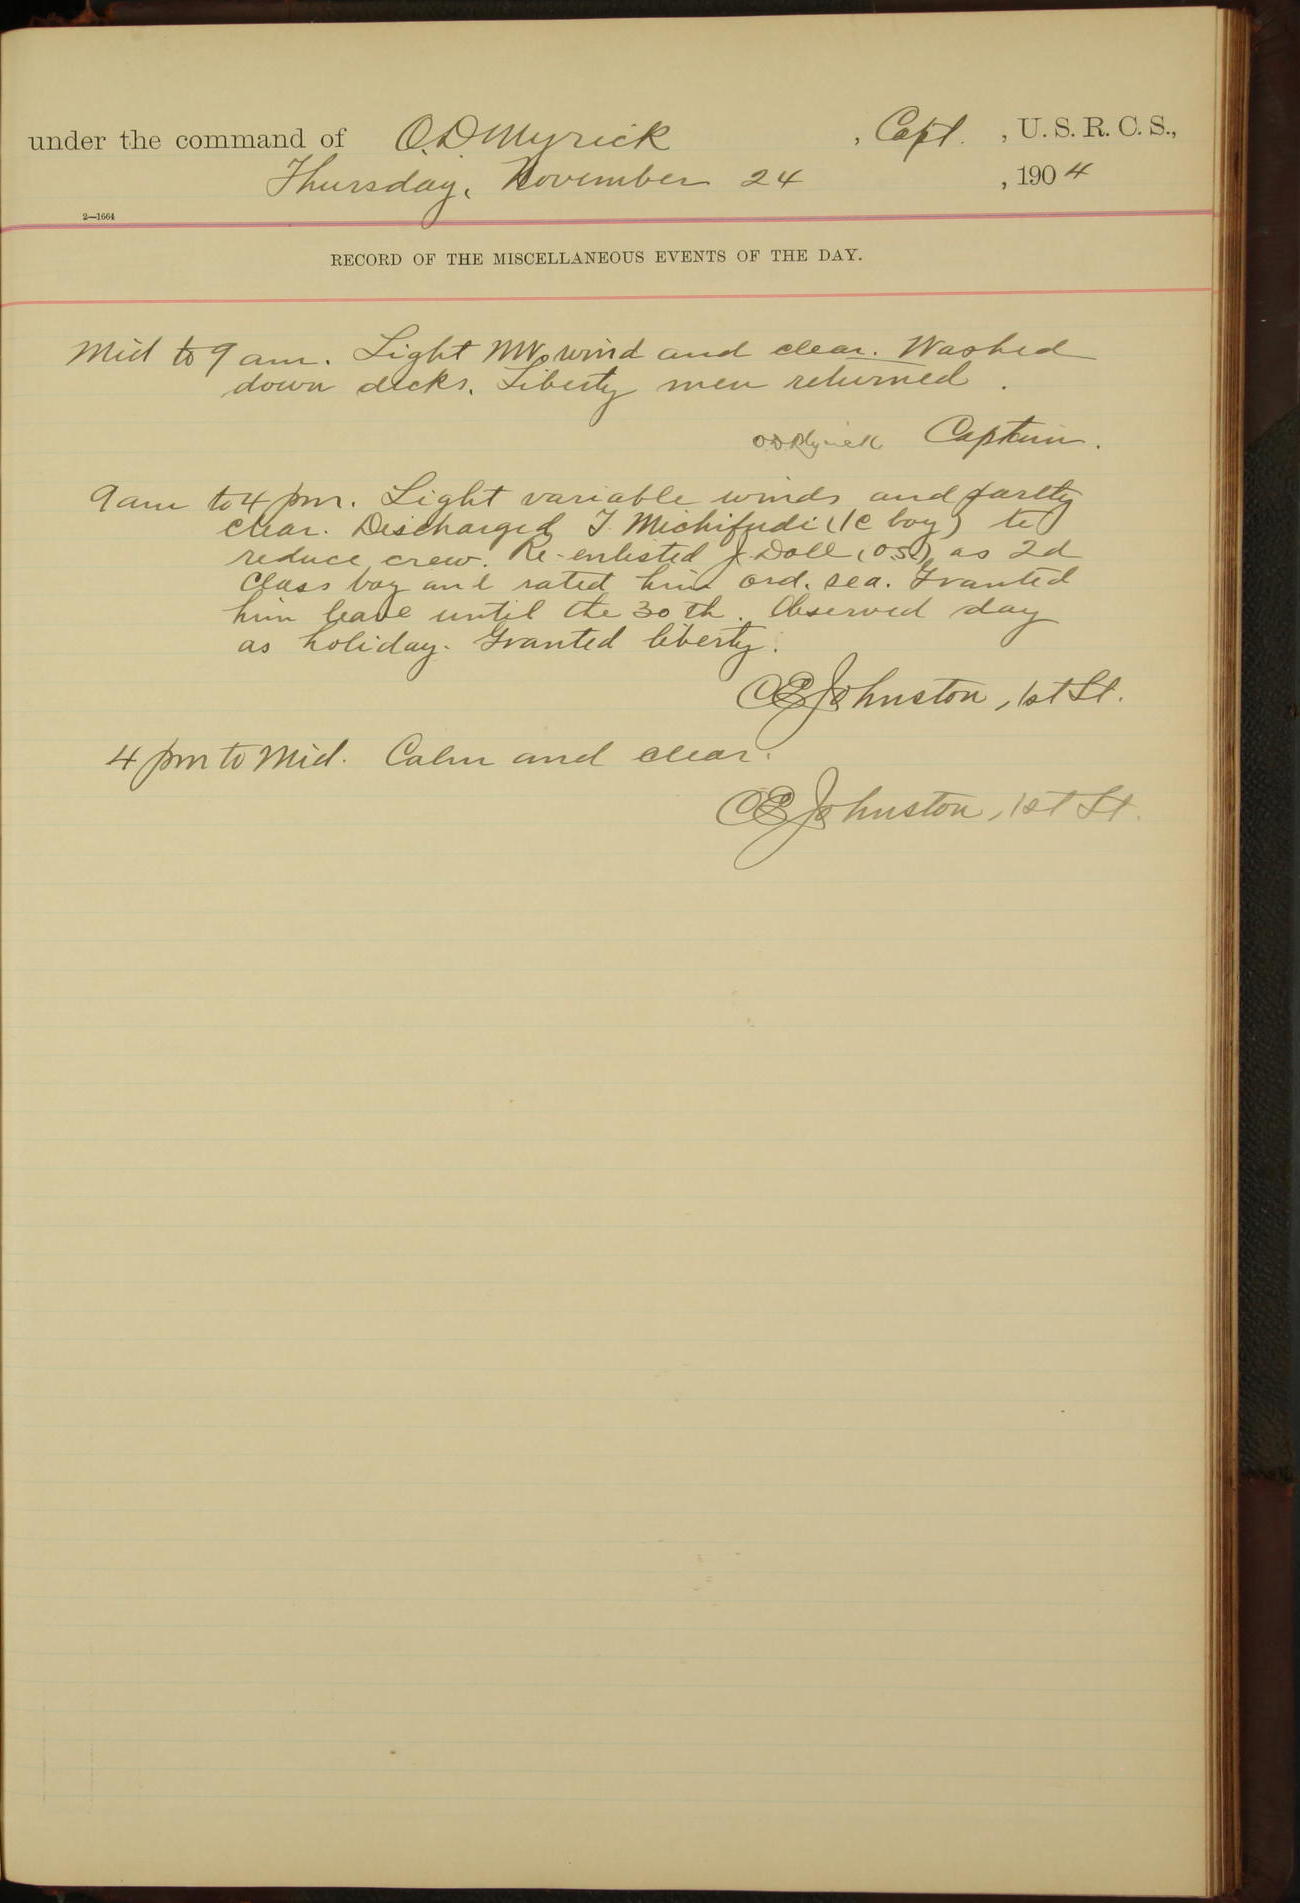 under the command of O. D. Myrick , Capt. , U. S. R. C. S.,
Thursday, November 24 , 1904
2—1664
RECORD OF THE MISCELLANEOUS EVENTS OF THE DAY.
Mid to 9 am. Light NW wind and clear. Washed
down decks. Liberty men returned.
O D Myrick Captain.
9 am to 4 pm. Light variable winds and partly
clear. Discharged T. Michifudi (1c boy) to
reduce crew. Re-enlisted J. Doll (OS), as 2d
Class boy and rated him ord. sea. Granted
him leave until the 30th. Observed day
as holiday. Granted liberty.
C E Johnston, 1st Lt.
4 pm to Mid. Calm and clear.
C E Johnston, 1st Lt.